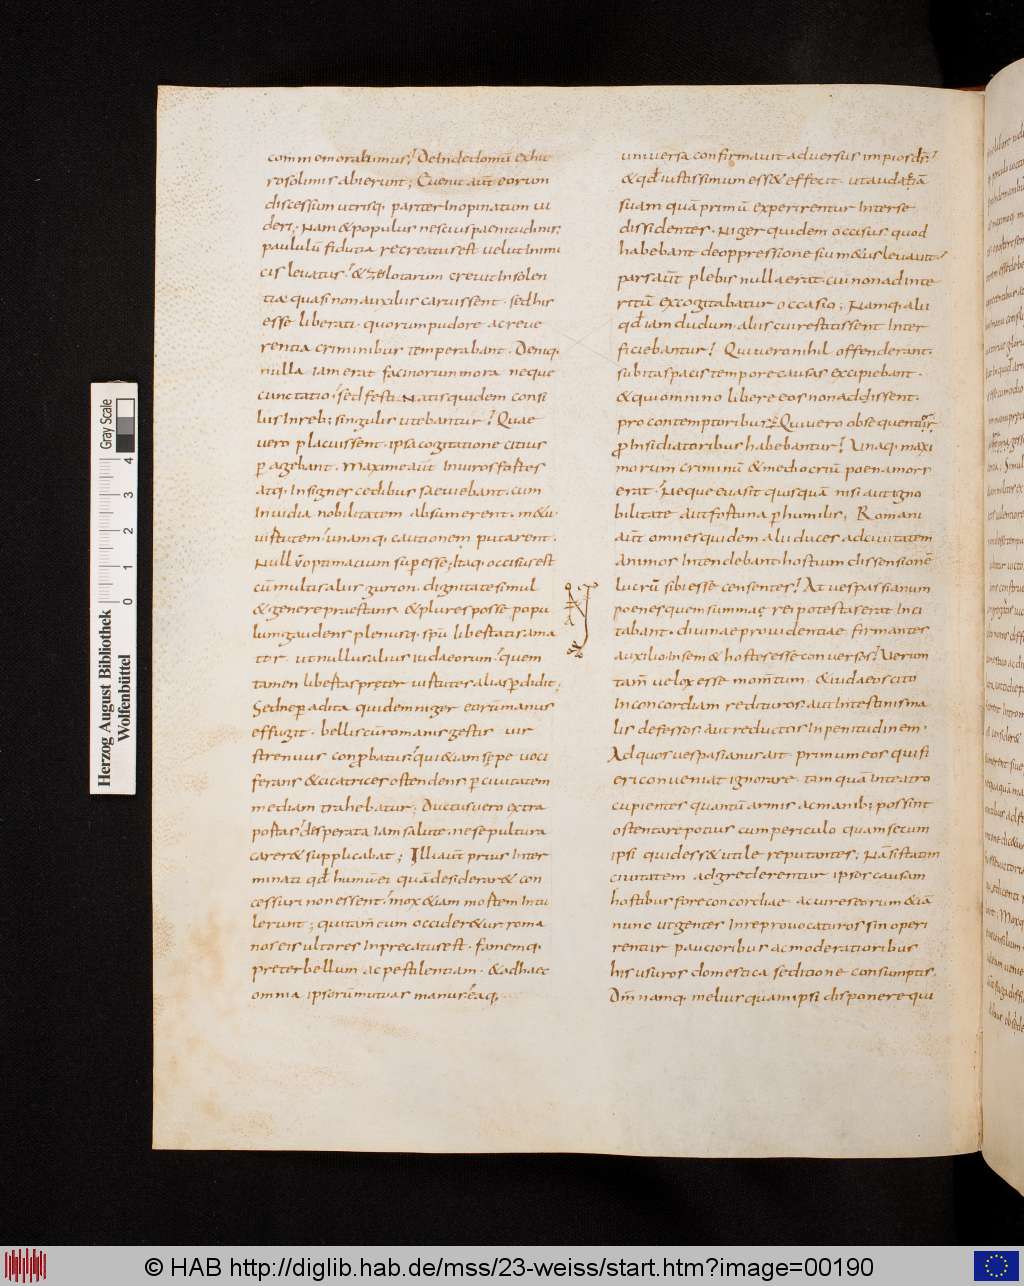 commemorabimus! Deinde domū exhie
rosolimis abierunt; Euenit aūt eorum
discessum utrisq. pariter inopinatum ui
deri; Nam & populus nescius paenitudinis;
paululū fiducia recreatus est uelut inimi
cis leuatus! & zelotarum creuit insolen
tia quasi non auxiliis caruissent. sed his
esse liberati. quorum pudore ac reue
rentia criminibus temperabant. Deniq.
nulla iam erat facinorum mora neque
cunctatio! sed festinatis quidem consi
liis in reb; singulis utebantur! Quae
uero placuissent. ipsa cogitatione citius
p agebant. Maxime aūt in uiros fortes
atq. insignes cedibus saeuiebant. cum
inuidia nobilitatem absumerent. m&u
uirtutem! unam q. cautionem putarent.
Nullū optimatium sup esse; Itaq. occisus est
cū multis aliis gurion. dignitate simul
& genere praestans. & plures posse popu
lum gaudens plenusq. spū libertatis ama
tor. ut nullus alius iudaeorum! quem
tamen libertas pręter uirtutes alias p didit;
Sed ne p adita quidem niger eorū manus
effugit. bellis cū romanis gestis uir
strenuus conprobatus! qui & iam sepe uoci
ferans & cicatrices ostendens p ciuitatem
mediam trahebatur; Ductus uero extra
portas! desperata iam salute. ne sepultura
carer& supplicabat; Illi aūt prius inter
minati qd humū ei quā desiderar& con
cessuri non essent! mox & iam mortem intu
lerunt; qui tam̄ cum occider&ur roma
nos eis ultores inprecatus est. famem q.
preter bellum ac pestilentiam. & ad haec
omnia ipsorū mutuas manus! eaq.
uniuersa confirmauit aduersus impios ds!
& qd iustissimum ess& effecit. ut audatiā
suam quā primū experirentur inter se
dissidentes. Niger quidem occisus quod
habebant de oppressione sui m&us leuauit!
pars aūt plebis nulla erat. cui non ad inte
ritū excogitabatur occasio; Namq. alii
qd iam dudum aliis cui restitissent inter
ficiebantur! Qui uero nihil offenderant.
subitas pacis tempore causas excipiebant.
& qui omnino libere eos non adissent.
pro contemptoribus; Qui uero obsequentiores
p insidiatoribus habebantur! Unaq. maxi
morum criminū & mediocriū poena mors
erat! Neque euasit quisquā nisi aut igno
bilitate aut fortuna p humilis; Romani
aūt omnes quidem alii duces ad ciuitatem
animos intendebant. hostium dissensionē
lucrū sibi esse censentes! At uespasianum
poenes quem summae rei potestas erat inci
tabant. diuinae prouidentiae firmantes
auxilio in sem& hostes esse conuersos! Uerum
tam̄ uelox esse mom̄tum. & iudaeos cito
in concordiam redituros. aut intestinis ma
lis defessos. aut reductos in penitudinem.
Ad quos uespasianus ait primum eos quis fi
eri conueniat ignorare. tam quā in teatro
cupientes quantū armis ac manib; possint
ostentare potius cum periculo quam secum
ipsi quid ess& utile reputantes; Nā si statim
ciuitatem adgrederentur ipsos causam
hostibus fore concordiae. ac uires eorum & iā
nunc urgentes in re prouocaturos sin operi
rentur paucioribus ac moderatioribus
his usuros domestica seditione consumptis.
Dm̄ namq. melius quam ipsi disponere qui
Herzog August Bibliothek
Wolfenbüttel
0 1 2 3 4
Gray Scale
© HAB http://diglib.hab.de/mss/23-weiss/start.htm?image=00190